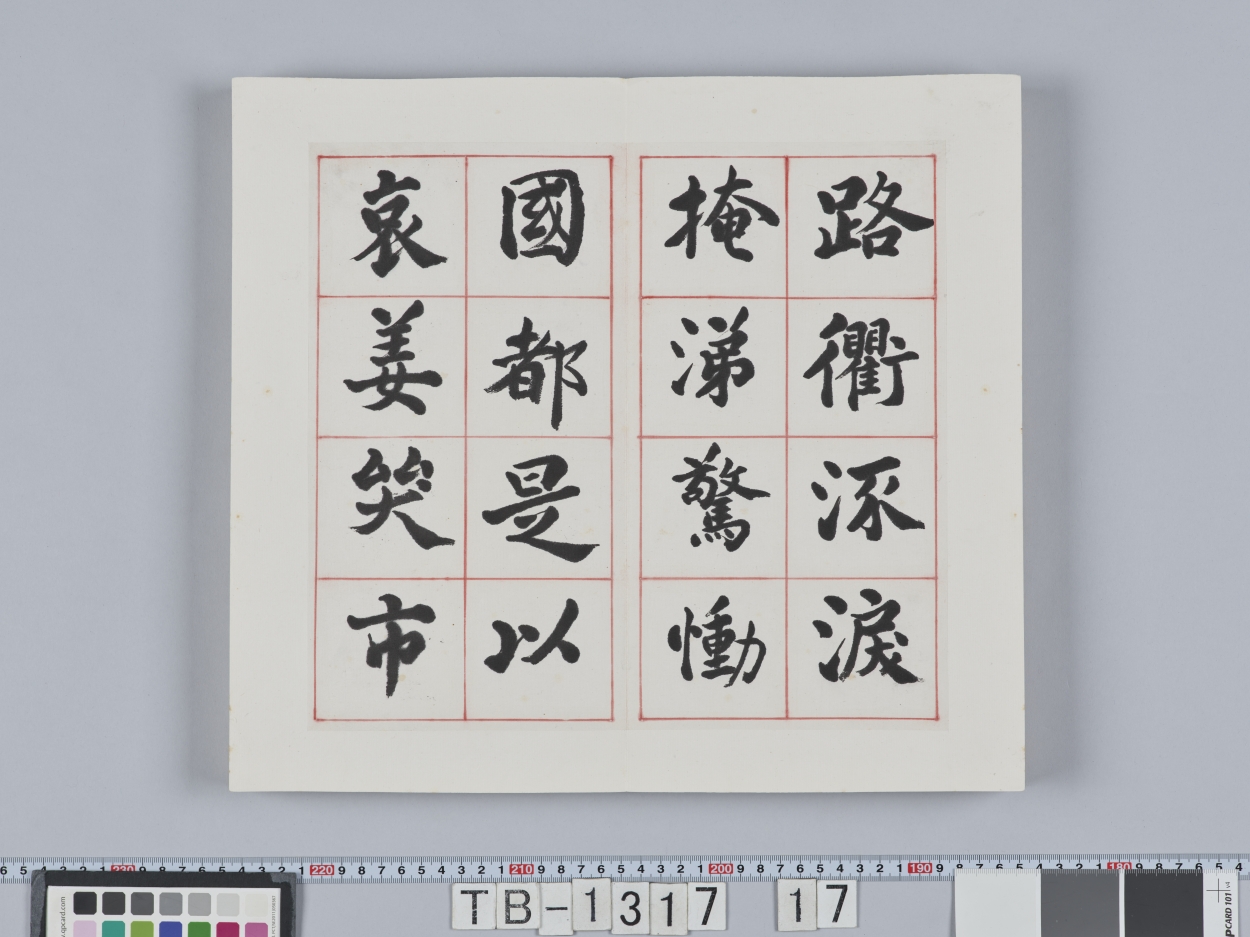 路衢涿淚
掩涕驚慟
國都是以
哀姜哭市
TB-1317 17